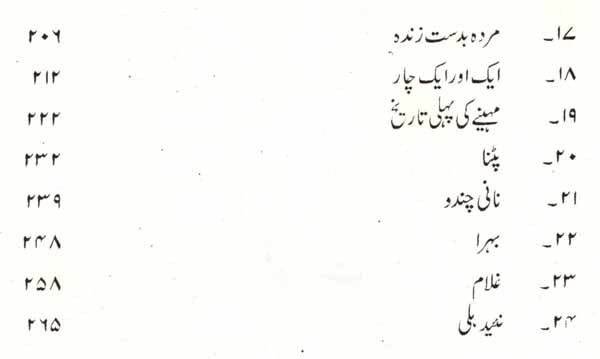 ۱۷۔ مردہ بدست زندہ ۲۰۶
۱۸۔ ایک اور ایک چار ۲۱۲
۱۹۔ مہینے کی پہلی تاریخ ۲۲۲
۲۰۔ پٹنا ۲۳۲
۲۱۔ نانی چندو ۲۳۹
۲۲۔ بہرا ۲۴۸
۲۳۔ غلام ۲۵۸
۲۴۔ نئید ہلی ۲۶۵